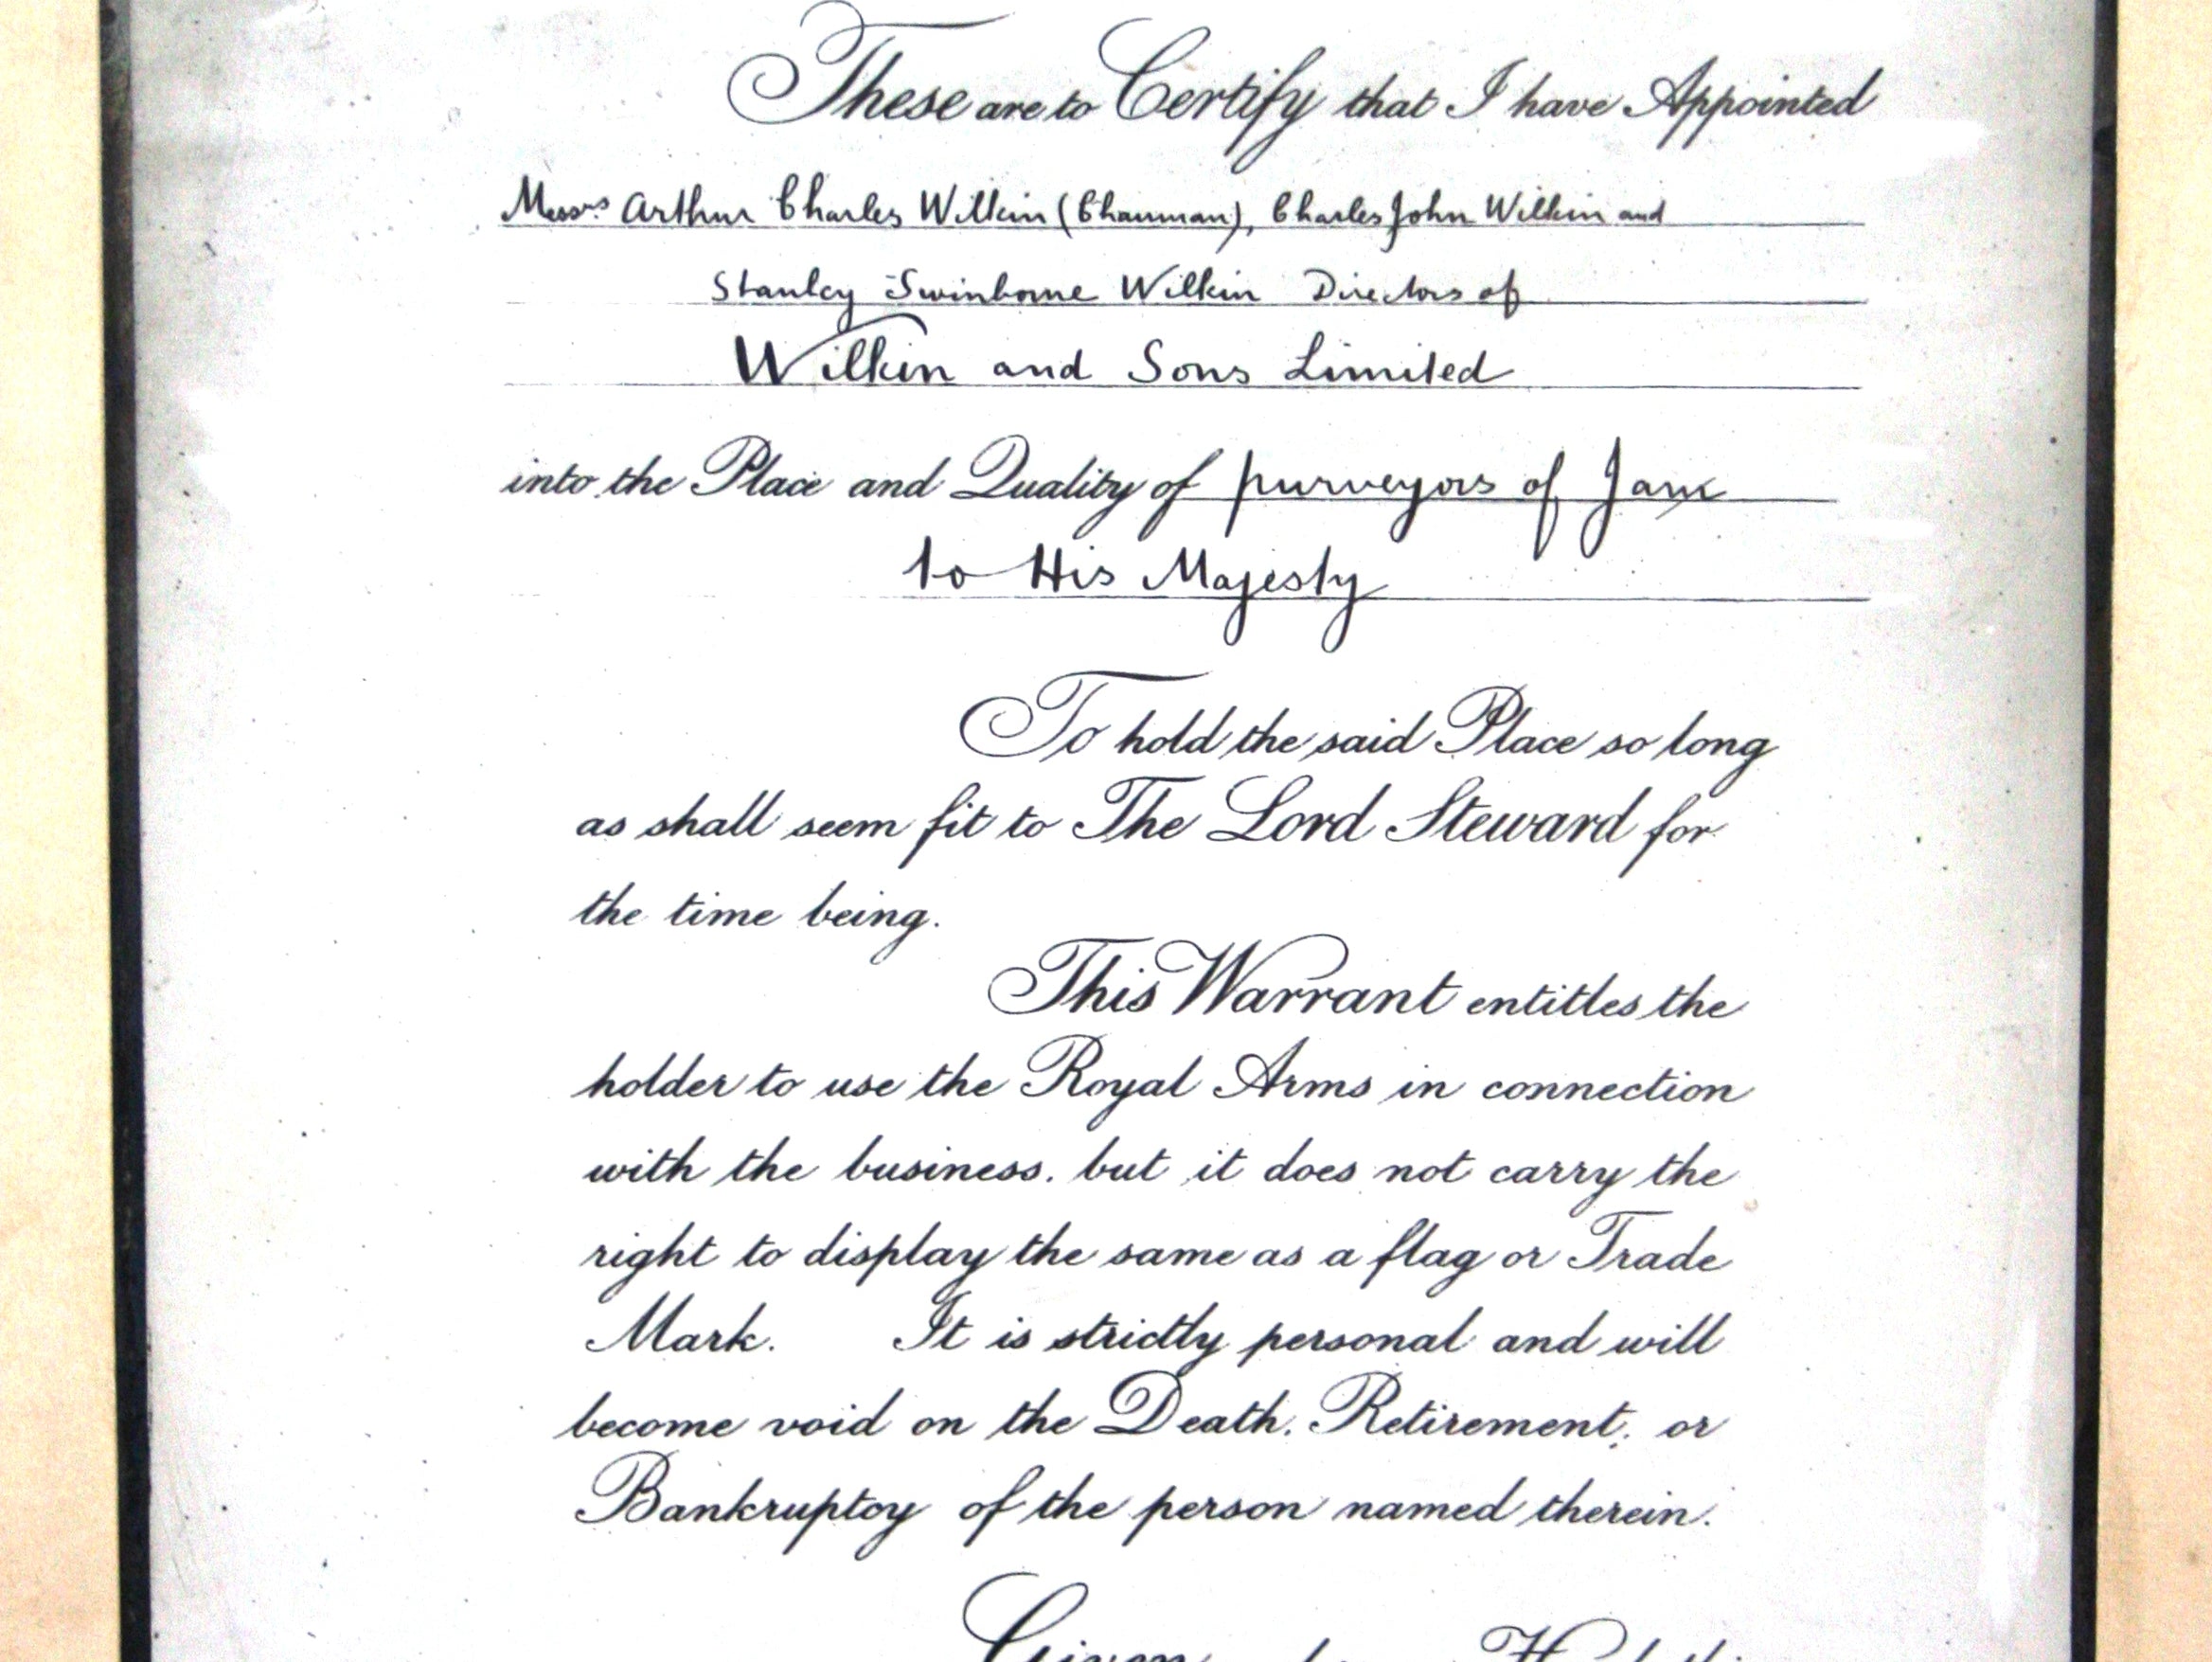 These are to Certify that I have Appointed
Messrs. Arthur Charles Wilkin (Chairman), Charles John Wilkin and
Stanley Swinborne Wilkin Directors of
Wilkin and Sons Limited
into the Place and Quality of purveyors of Jam
to His Majesty
To hold the said Place so long
as shall seem fit to The Lord Steward for
the time being.
This Warrant entitles the
holder to use the Royal Arms in connection
with the business. but it does not carry the
right to display the same as a flag or Trade
Mark. It is strictly personal and will
become void on the Death, Retirement, or
Bankruptcy of the person named therein.
Given